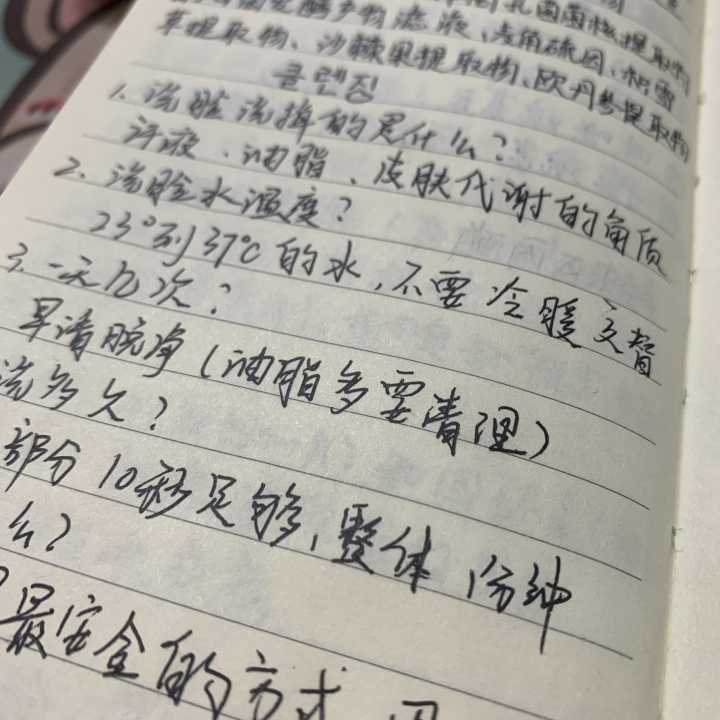 产物滤液、老角硫因、
草提取物、沙棘果提取物、欧丹参提取物
클렌징
1. 洗脸洗掉的是什么?
汗液、油脂、皮肤代谢的角质
2. 洗脸水温度?
23°到37℃的水,不要冷暖交替
3. 一天几次?
早清晚净(油脂多要清理)
洗多久?
部分10秒足够,整体1分钟
么?
最安全的方式